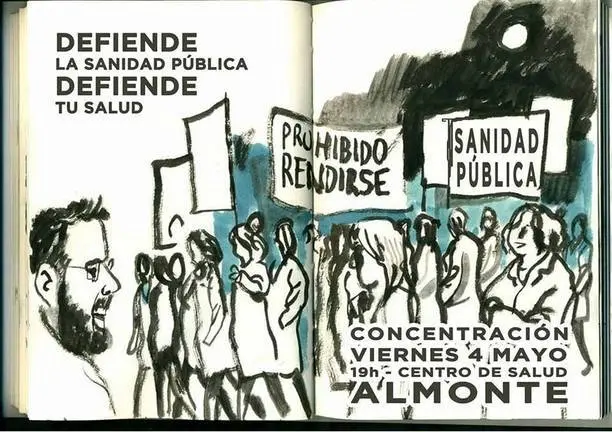 DEFIENDE
LA SANIDAD PÚBLICA
DEFIENDE
TU SALUD
PROHIBIDO
RENDIRSE
SANIDAD
PÚBLICA
CONCENTRACIÓN
VIERNES 4 MAYO
19h - CENTRO DE SALUD
ALMONTE